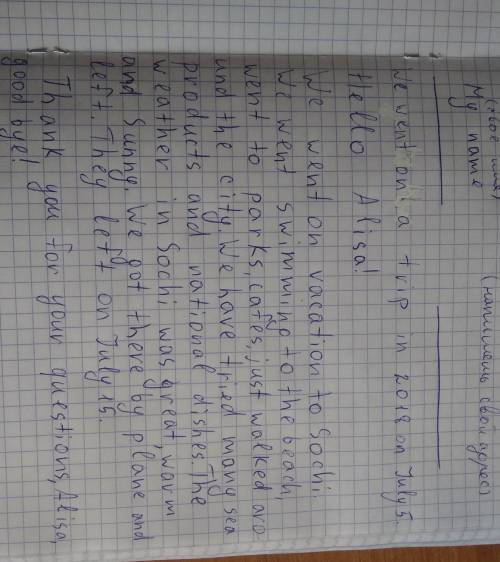 (своё имя) (напишешь свой адрес)
My name
We went on a trip in 2018 on July 5.
Hello Alisa!
We went on vacation to Sochi.
We went swimming to the beach,
went to parks, cafes, just walked aro
und the city. We have tried many sea
products and national dishes. The
weather in Sochi was great, warm
and sunny. We got there by plane and
left. They left on July 15.
Thank you for your questions, Alisa,
goodbye!